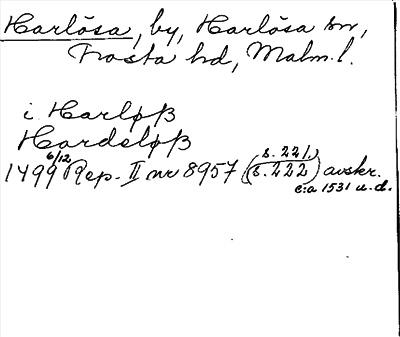 Harlösa, by, Harlösa sn,
Frosta hd, Malm. l.
i Harløß
Hardeløß
1499 6/12 Rep. II nr 8957 (s. 221, s. 222) avskr.
c:a 1531 u.d.